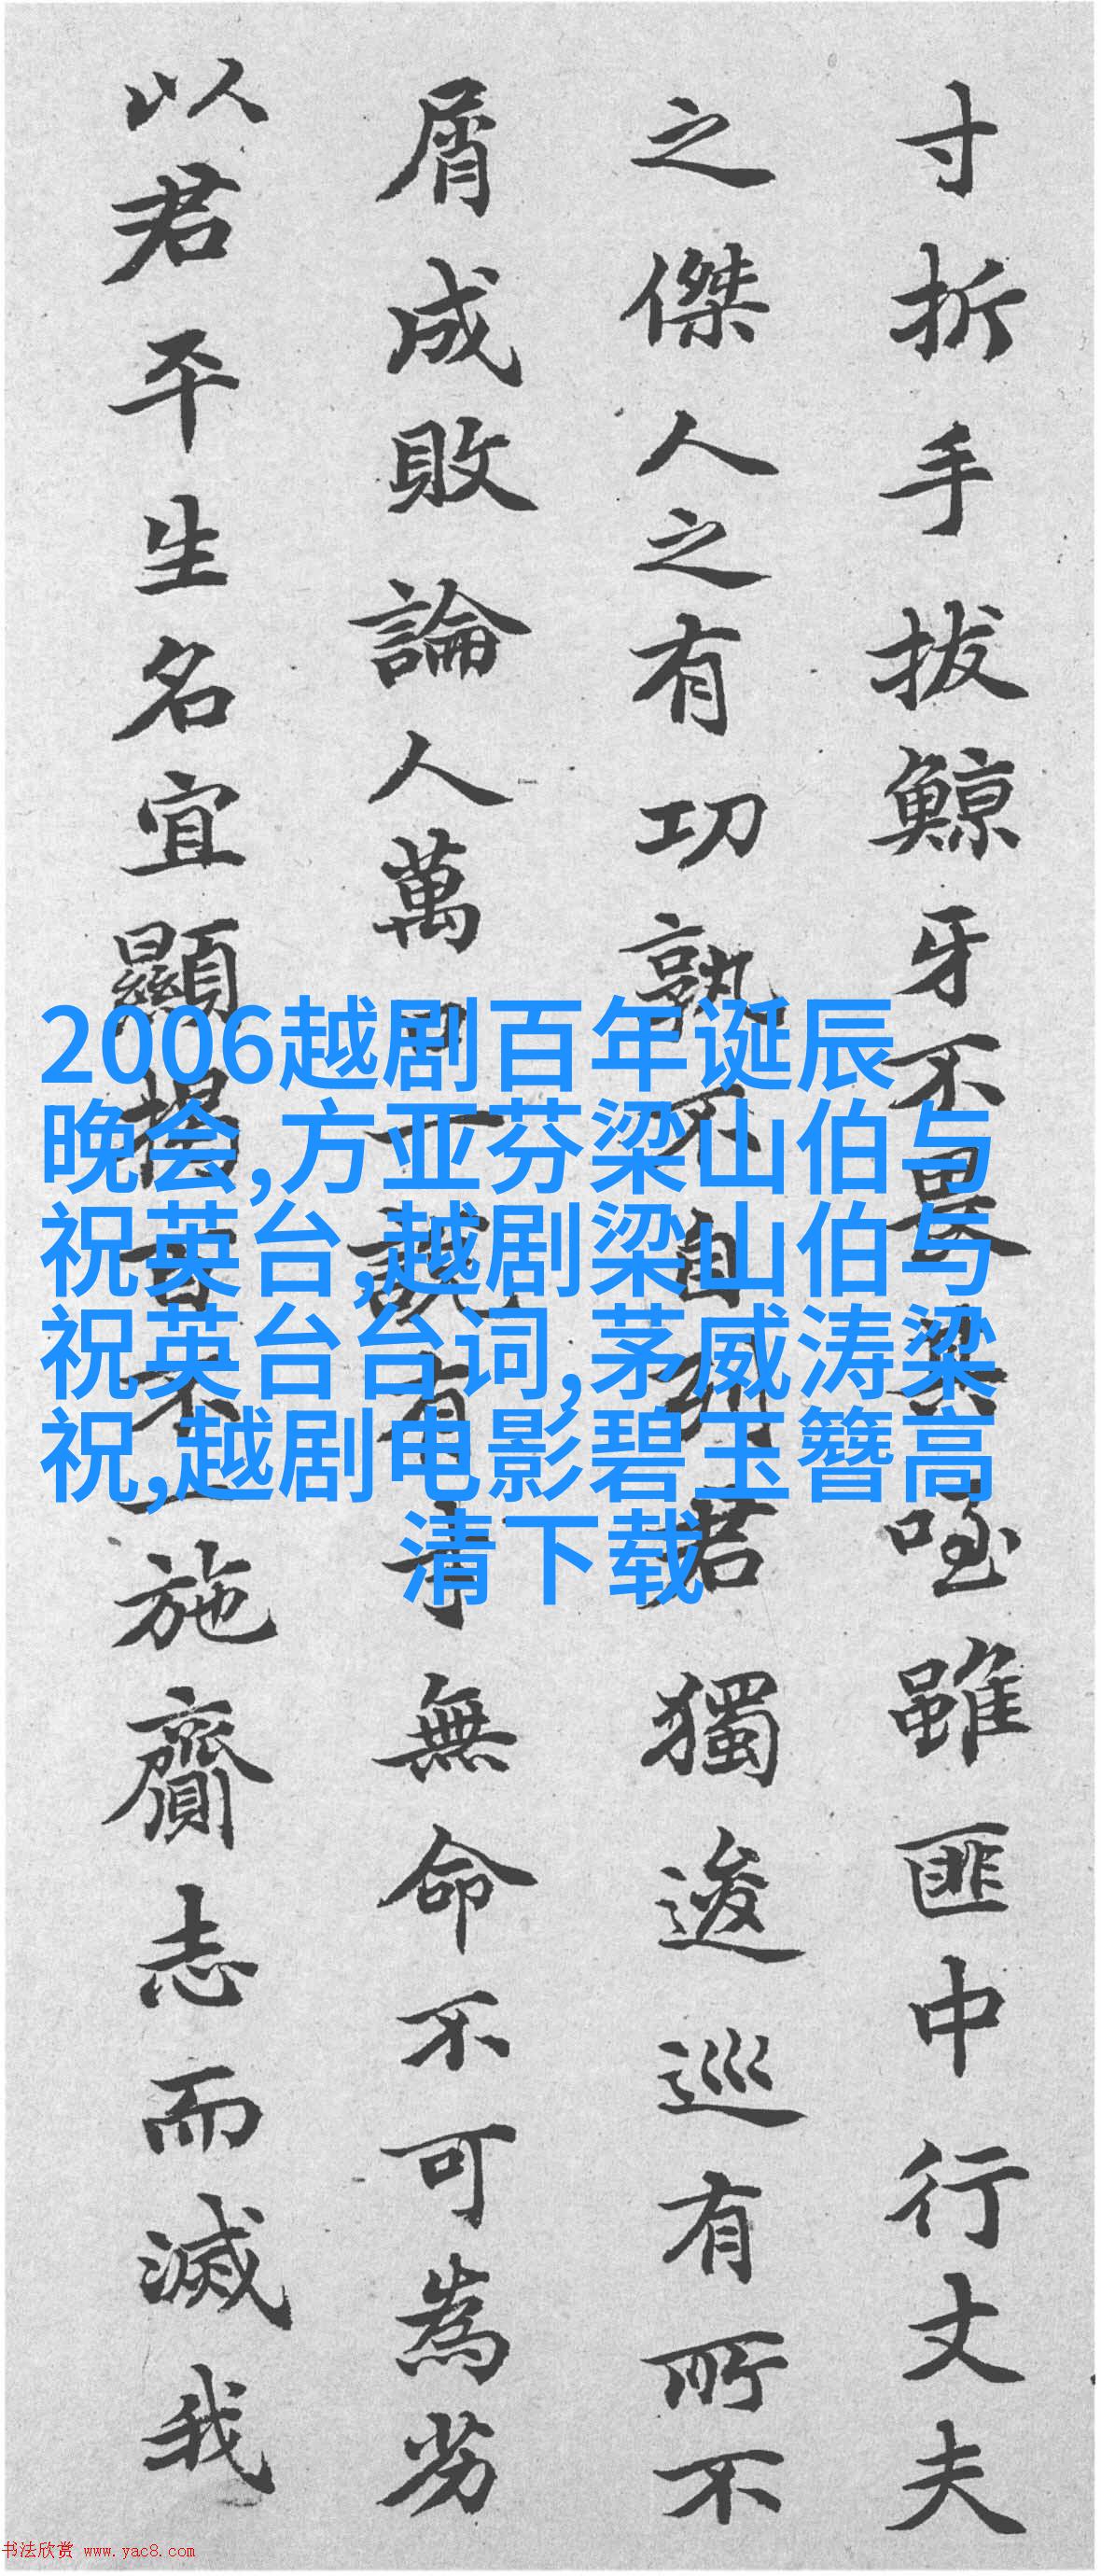 寸折手拔鯨牙不畏咥雖匪中行丈夫
之傑人之有功孰不自君獨逡巡有所不
屑成敗論人萬口一說有才無命不可為劳
以君平生名宜顯揭百不一施齎志而滅我
2006越剧百年诞辰
晚会,方亚芬梁山伯与
祝英台,越剧梁山伯与
祝英台台词,茅威涛梁
祝,越剧电影碧玉簪高
清下载
书法欣赏 www.yac8.com